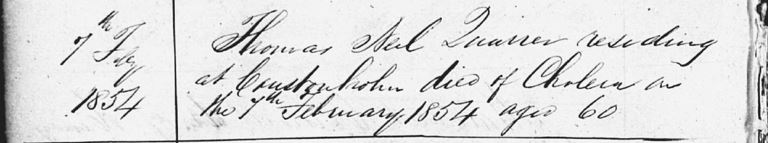 7th Feby
1854
Thomas Neil Quarrer residing
at died of Cholera on
the 7th February 1854 aged 60